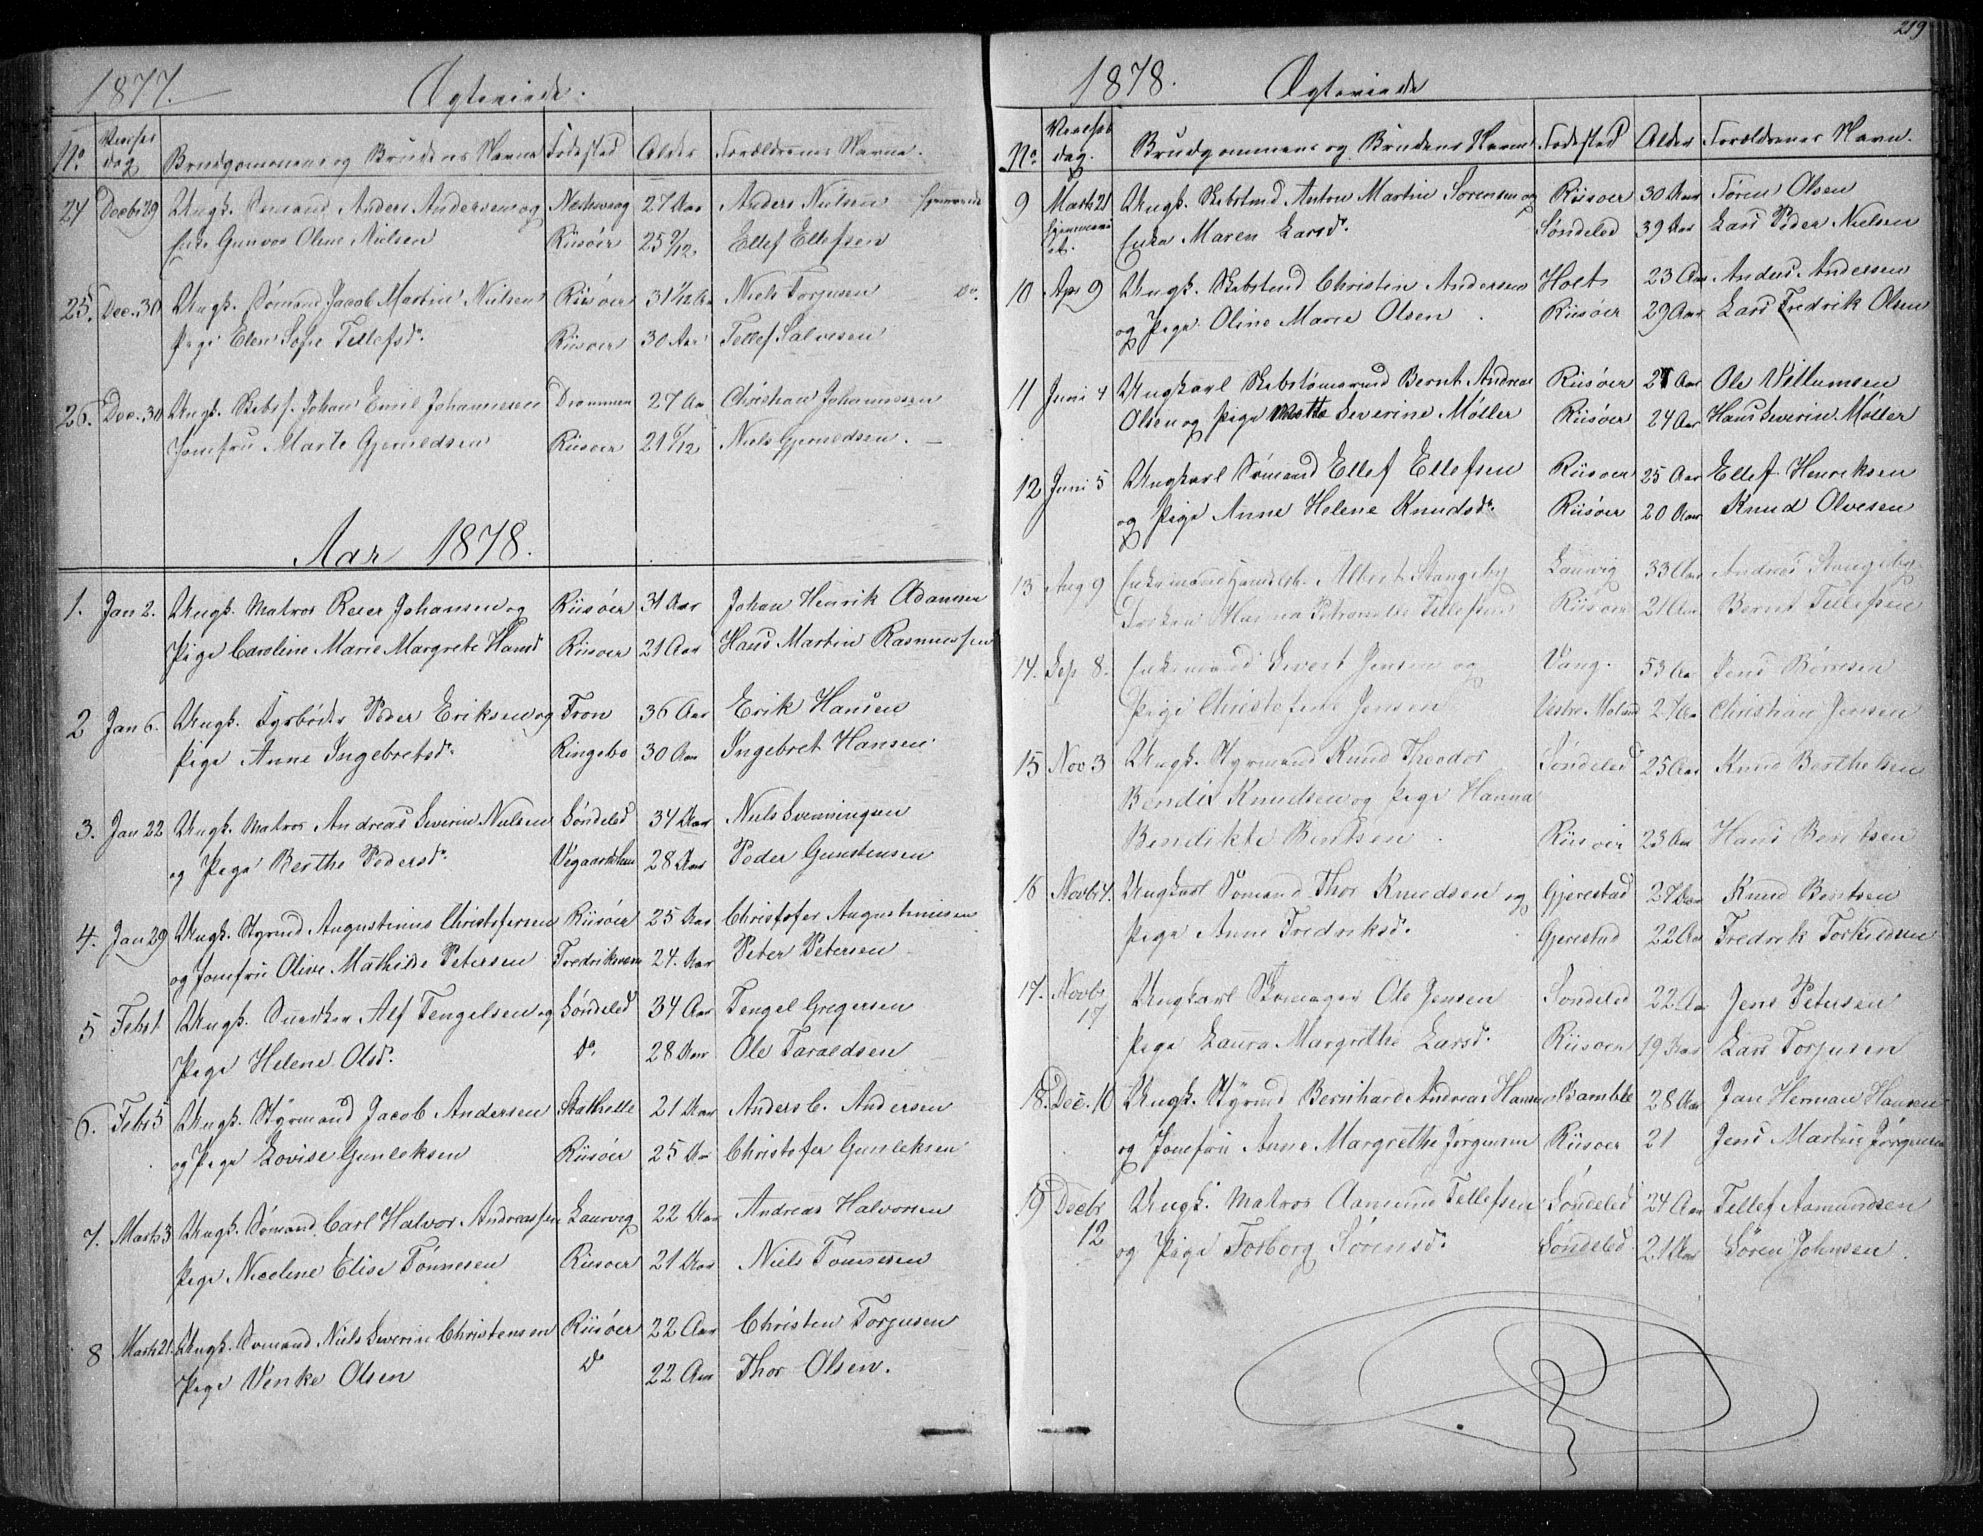 1877. Ægteviede.
No. Vielses dag Brudgommens og Brudens Navne Fødested Alder Forældrenes Navne.
24 Decbr 29 Ungk. Sømand Anders Andersen og Næskverg 27 Aar Anders Nielsen hjemmeviede
Enke Gunvor Oline Nielsen Riisöer 25 9/12 Ellef Ellefsen
25. Dec. 30 Ungk. Sömand Jacob Martin Nielsen Riisöer 31 1/12 Aar Niels Torjusen Do.
Pige Elen Sofie Tellefsdr. Riisöer 30 Aar Tellef Salvesen
26. Dec. 30 Ungk. Skbsf. Johan Emil Johannesen Drammen 27 Aar Christian Johannesen
Jomfru Marte Gjeruldsen Riisöer 21 6/12 Niels Gjeruldsen. —
Aar 1878.
1. Jan 2. Ungk. Matros Reier Johansen og Riisöer 31 Aar Johan Henrik Adamsen
Pige Caroline Marie Margrete Hansd Riisöer 21 Aar Hans Martin Rasmussen
2 Jan 6. Ungk. Fyrböder Peder Eriksen og Fron 36 Aar Erik Hansen
Pige Anne Ingebretsdr. Ringebo 30 Aar Ingebret Hansen
3. Jan 22 Ungk. Matros Andreas Severin Nielsen Söndeled 34 Aar Niels Svenningsen
og Pige Berthe Pedersdr. Vegaardsheien 28 Aar Peder Gunstensen
4. Jan 29 Ungk. Styrmd Augustinus Christofersen Riisöer 25 Aar Christofer Augustinusen
og Jomfru Olive Mathilde Petersen Fredriksværn 24 Aar Peter Petersen
5 Feb 1 Ungk. Snedker Alf Tengelsen og Söndeled 34 Aar Tengel Gregersen
Pige Helene Olsdr. Do. 28 Aar Ole Taraldsen
6. Febr 5 Ungk. Styrmand Jacob Andersen Stathelle 21 Aar Anders C. Andersen
og Pige Lovise Gunleksen Riisöer 25 Aar Christofer Gunleksen
7. Marts 3 Ungk. Sömand Carl Halvor Andreassen Laurvig 22 Aar Andreas Halvorsen
Pige Nicoline Elise Tönnesen Riisöer 21 Aar Niels Tönnesen
8 Marts 21. Ungk. Sömand Niels Severin Christensen Riisöer 22 Aar Christen Torjusen
Pige Venke Olsen Do 22 Aar Thor Olsen.
219
1878. Ægteviede
No. Vielses dag. Brudgommens og Brudens Navne Födested Alder Forældrenes Navn.
9 Marts 21 Ungk. Skbstmd Anton Martin Sörensen og Riisöer 30 Aar Sören Olsen
hjemmeviet. Enke Maren Larsdr. Söndeled 39 Aar Lars Peder Nielsen
10 Apr 9 Ungk. Skbstmd Christin Andersen Holt 23 Aar Anders Andersen
og Pige Oline Marie Olsen Riisöer 29 Aar Lars Fredrik Olsen
11 Juni 4 Ungkarl Skbstömmermd Bernt Andreas Riisöer 27 Aar Ole Villumsen
Olsen og Pige Mette Severine Möller Riisöer 24 Aar Hans Severin Möller
12 Juni 5 Ungkarl Sömand Ellef Ellefsen Riisöer 25 Aar Ellef Henriksen
og Pige Anne Helene Knudsdr. Riisöer 20 Aar Knud Olvesen
13 Aug 9 Enkemand Handelsb. Albert Stangeby Laurvig 33 Aar Andreas Stangeby
Frøken Hanna Petronelle Tellefsen Riisöer 21 Aar Bernt Tellefsen
14. Sep 8. Enkemand Sivert Jensen og Vang. 53 Aar Jens Börresen
Pige Christofine Jensen Vestre Moland 27 Aar Christian Jensen
15 Nov 3 Ungk. Styrmand Knud Theodor Söndeled 25 Aar Knud Berthelsen
Bendix Knudsen og Pige Hanna
Bendikte Bentsen Riisöer 23 Aar Hans Bentsen
16 Novbr 4. Ungkarl Sömand Thor Knudsen og Gjerestad 27 Aar Knud Bentsen
Pige Anne Fredriksdr. Gjerestad 22 Aar Fredrik Torkildsen
17. Novbr 17 Ungkarl Skomager Ole Jensen Söndeled 22 Aar Jens Petersen
Pige Laura Margrethe Larsdr. Riisöer 19 Aar Lars Torjusen
18. Dec. 10 Ungk. Styrmd Bernhard Andreas Hansen Bamble 28 Aar Jan Herman Hansen
og Jomfru Anne Margrethe Jörgensen Riisöer 21 Jens Martin Jörgensen
19 Decbr 12 Ungk. Matros Aamund Tellefsen Söndeled 24 Aar Tellef Aamundsen
og Pige Torborg Sörensdr. Söndeled 21 Aar Sören Johnsen.